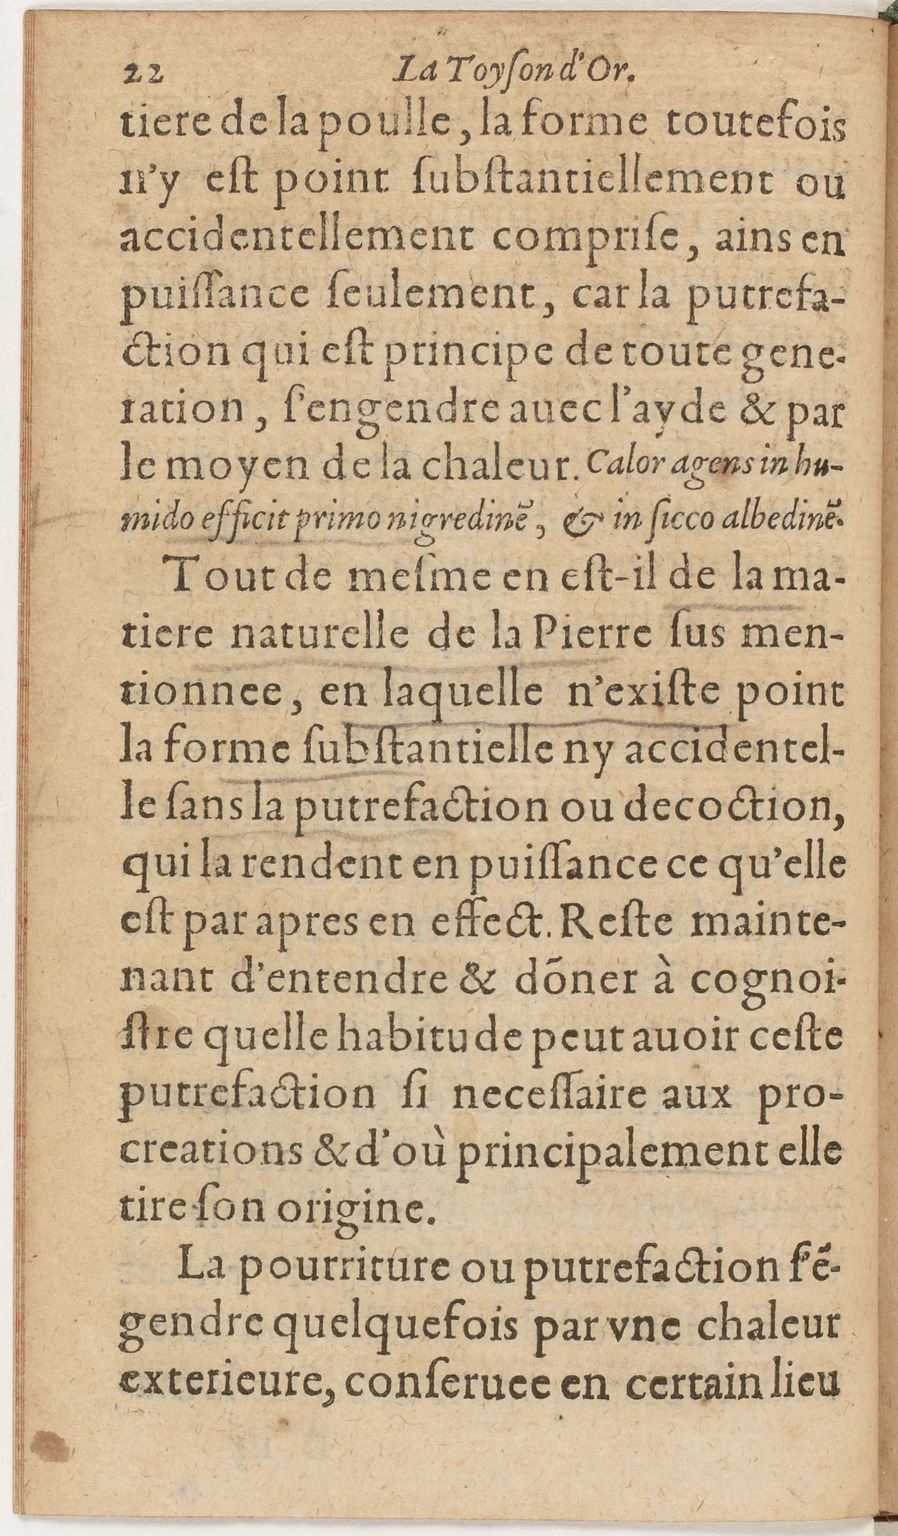 22 La Toyſon d'Or.
tiere de la poulle, la forme toutefois
n'y eſt point ſubſtantiellement ou
accidentellement compriſe, ains en
puiſſance ſeulement, car la putrefa-
ction qui eſt principe de toute gene-
ration, ſ'engendre auec l'ayde & par
le moyen de la chaleur. Calor agens in hu-
mido efficit primo nigredinẽ, & in ſicco albedinẽ.
Tout de meſme en eſt-il de la ma-
tiere naturelle de la Pierre ſus men-
tionnee, en laquelle n'exiſte point
la forme ſubſtantielle ny accidentel-
le ſans la putrefaction ou decoction,
qui la rendent en puiſſance ce qu'elle
eſt par apres en effect. Reſte mainte-
nant d'entendre & dõner à cognoi-
ſtre quelle habitude peut auoir ceſte
putrefaction ſi neceſſaire aux pro-
creations & d'où principalement elle
tire ſon origine.
La pourriture ou putrefaction ſ'ẽ-
gendre quelquefois par vne chaleur
exterieure, conſeruee en certain lieu